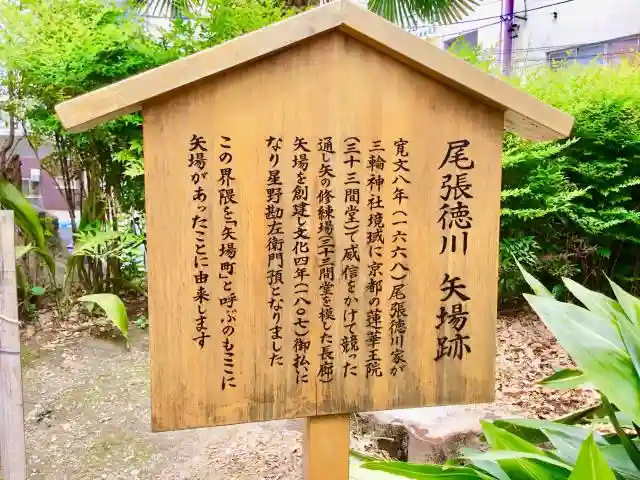 尾張徳川 矢場跡
寛文八年（一六六八）尾張徳川家が
三輪神社境域に京都の蓮華王院
（三十三間堂）で威信をかけて競った
通し矢の修練場（三十三間堂を模した長廊）
矢場を創建し文化四年（一八〇七）御払に
なり星野勘左衛門預となりました
この界隈を「矢場町」と呼ぶのもここに
矢場があったことに由来します